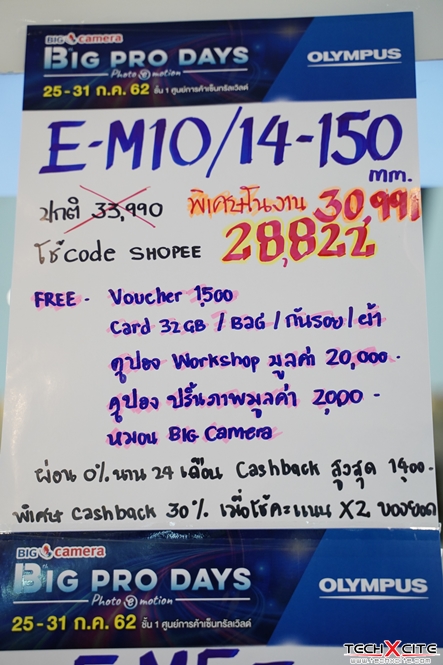 BIG camera
BIG PRO DAYS
Photo e motion
25-31 ก.ค. 62 ชั้น 1 ศูนย์การค้าเซ็นทรัลเวิลด์
OLYMPUS
E-M10/14-150
mm.
ปกติ 33,990 พิเศษในงาน 30,991
ใช้ code SHOPEE 28,822
FREE - Voucher 1,500
Card 32GB / BaG / กันรอย / ผ้า
คูปอง Workshop มูลค่า 20,000.-
คูปอง ปริ้นภาพมูลค่า 2,000 -
หมอน BIG Camera
ผ่อน 0% นาน 24 เดือน Cashback สูงสุด 1400.-
พิเศษ cashback 30% เมื่อใช้คะแนน X2 ของยอด
BIG camera
BIG PRO DAYS
Photo e motion
25-31 ก.ค. 62 ชั้น 1 ศูนย์การค้าเซ็นทรัลเวิลด์
OLYMPUS
TECHXCITE
WWW.TECHXCITE.COM